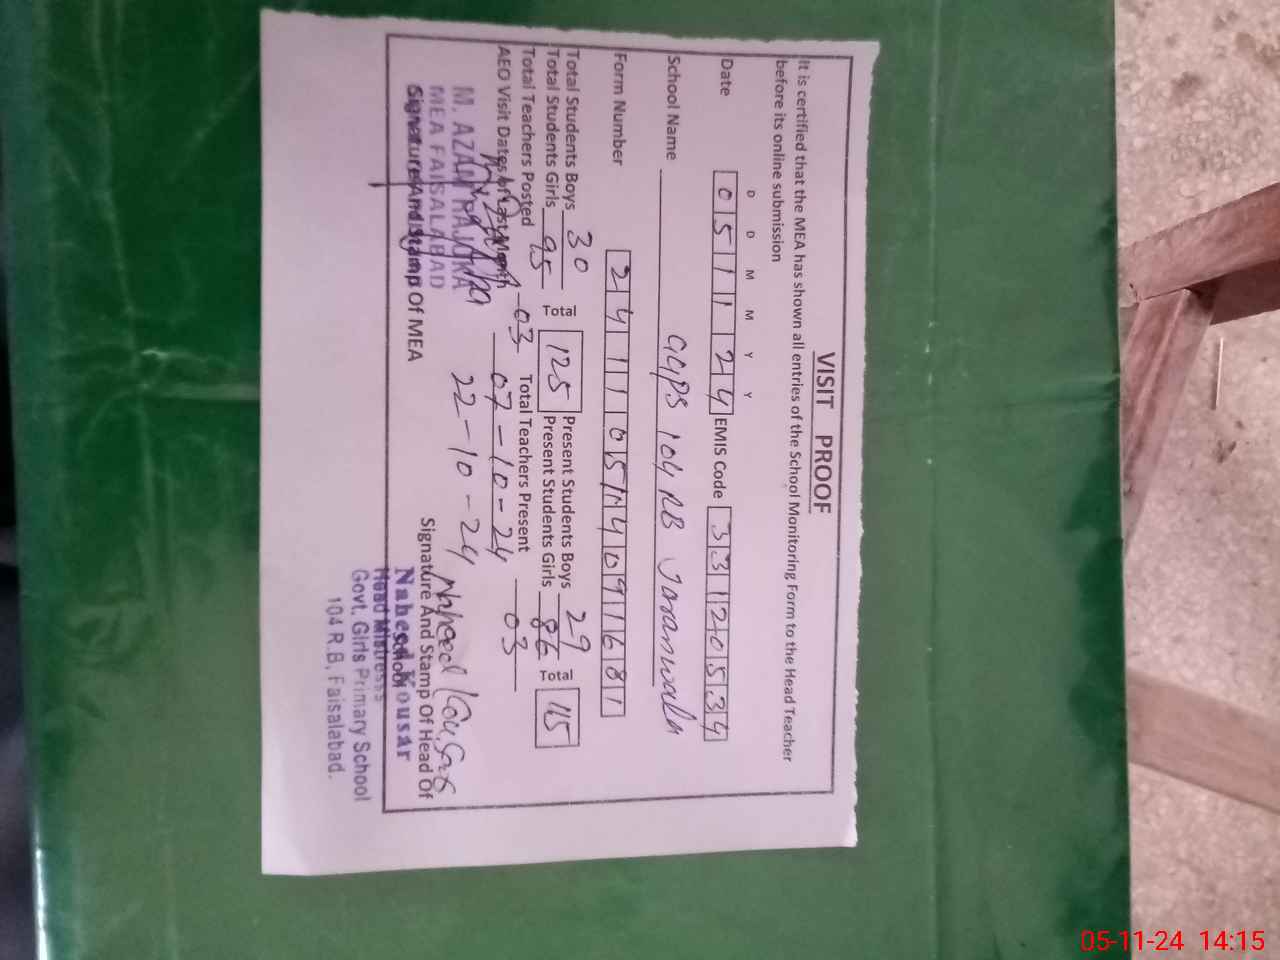 VISIT PROOF
It is certified that the MEA has shown all entries of the School Monitoring Form to the Head Teacher
before its online submission
D D M M Y Y
Date 051124 EMIS Code 33120534
School Name GGPS 104 RB Jaranwala
Form Number 24110514091681
Total Students Boys 30 Total 125 Present Students Boys 29 Total 115
Total Students Girls 95 Present Students Girls 86
Total Teachers Posted 03 Total Teachers Present 03
AEO Visit Dates of Last Month 07-10-24
22-10-24
M. AZAM RAJOKA
MEA FAISALABAD
Signature And Stamp Of MEA
Naheed Kousar
Signature And Stamp Of Head Of
School
Naheed Kousar
Head Mistress
Govt. Girls Primary School
104 R.B, Faisalabad.
05-11-24 14:15